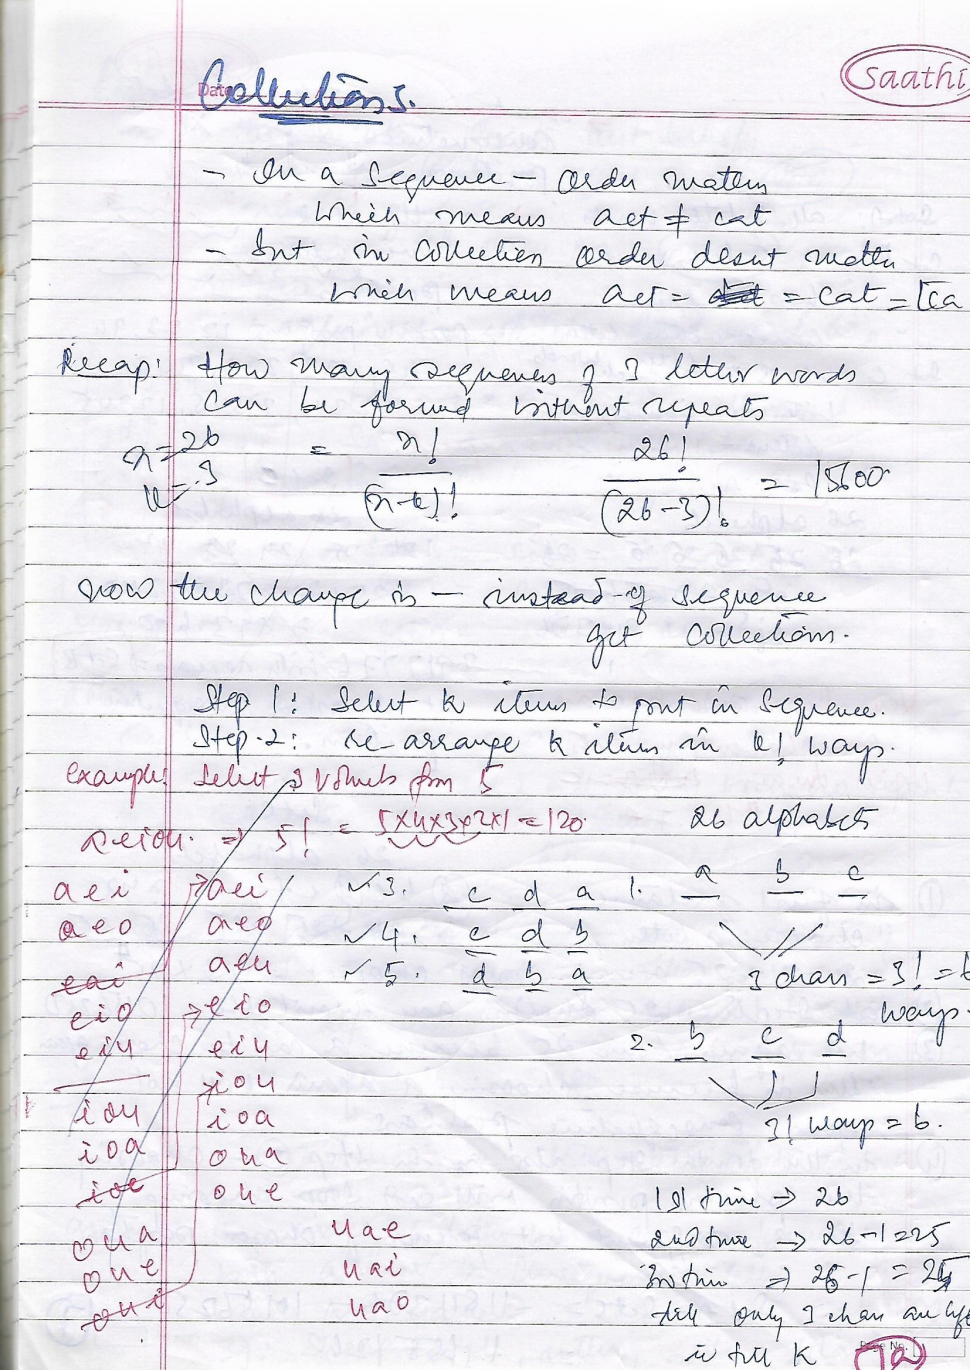 Saathi
Date
Collections.
- In a sequence - order matters
which means act ≠ cat
- but in collection order desnt matter
which means act = = cat = [ca
Recap: How many sequences of 3 letter words
can be formed without repeats
n=26
k=3
= n! / (n-k)!   26! / (26-3)! = 15600
now the change is - instead of sequence
get collections.
Step 1: Select k items to put in sequence.
Step-2: re-arrange k item in k! ways.
example: select 3 vowels from 5
aeiou. => 5! = 5x4x3x2x1=120.
26 alphabets
aei → aei
aeo aeo
eai aeu
eio → eio
eiu eiu
→ iou
iou ioa
ioa oua
ioe oue
oua uae
oue uai
oui uao
✓3. c d a
✓4. c d b
✓5. d b a
1. a b c
3 chars = 3! = 6
ways.
2. b c d
3! ways = 6.
1st time → 26
2nd time → 26-1=25
3rd time => 26-1 = 25
till only 3 char are lef
ie till k
Page No.
72